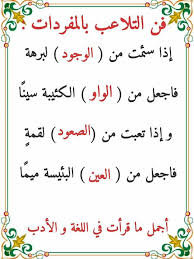 فن التلاعب بالمفردات :
إذا سئمت من ( الوجود ) لبرهة
فاجعل من ( الواو ) الكئيبة سينًا
و إذا تعبت من ( الصعود ) لقمةٍ
فاجعل من ( العين ) البئيسة ميمًا
أجمل ما قرأت في اللغة و الأدب